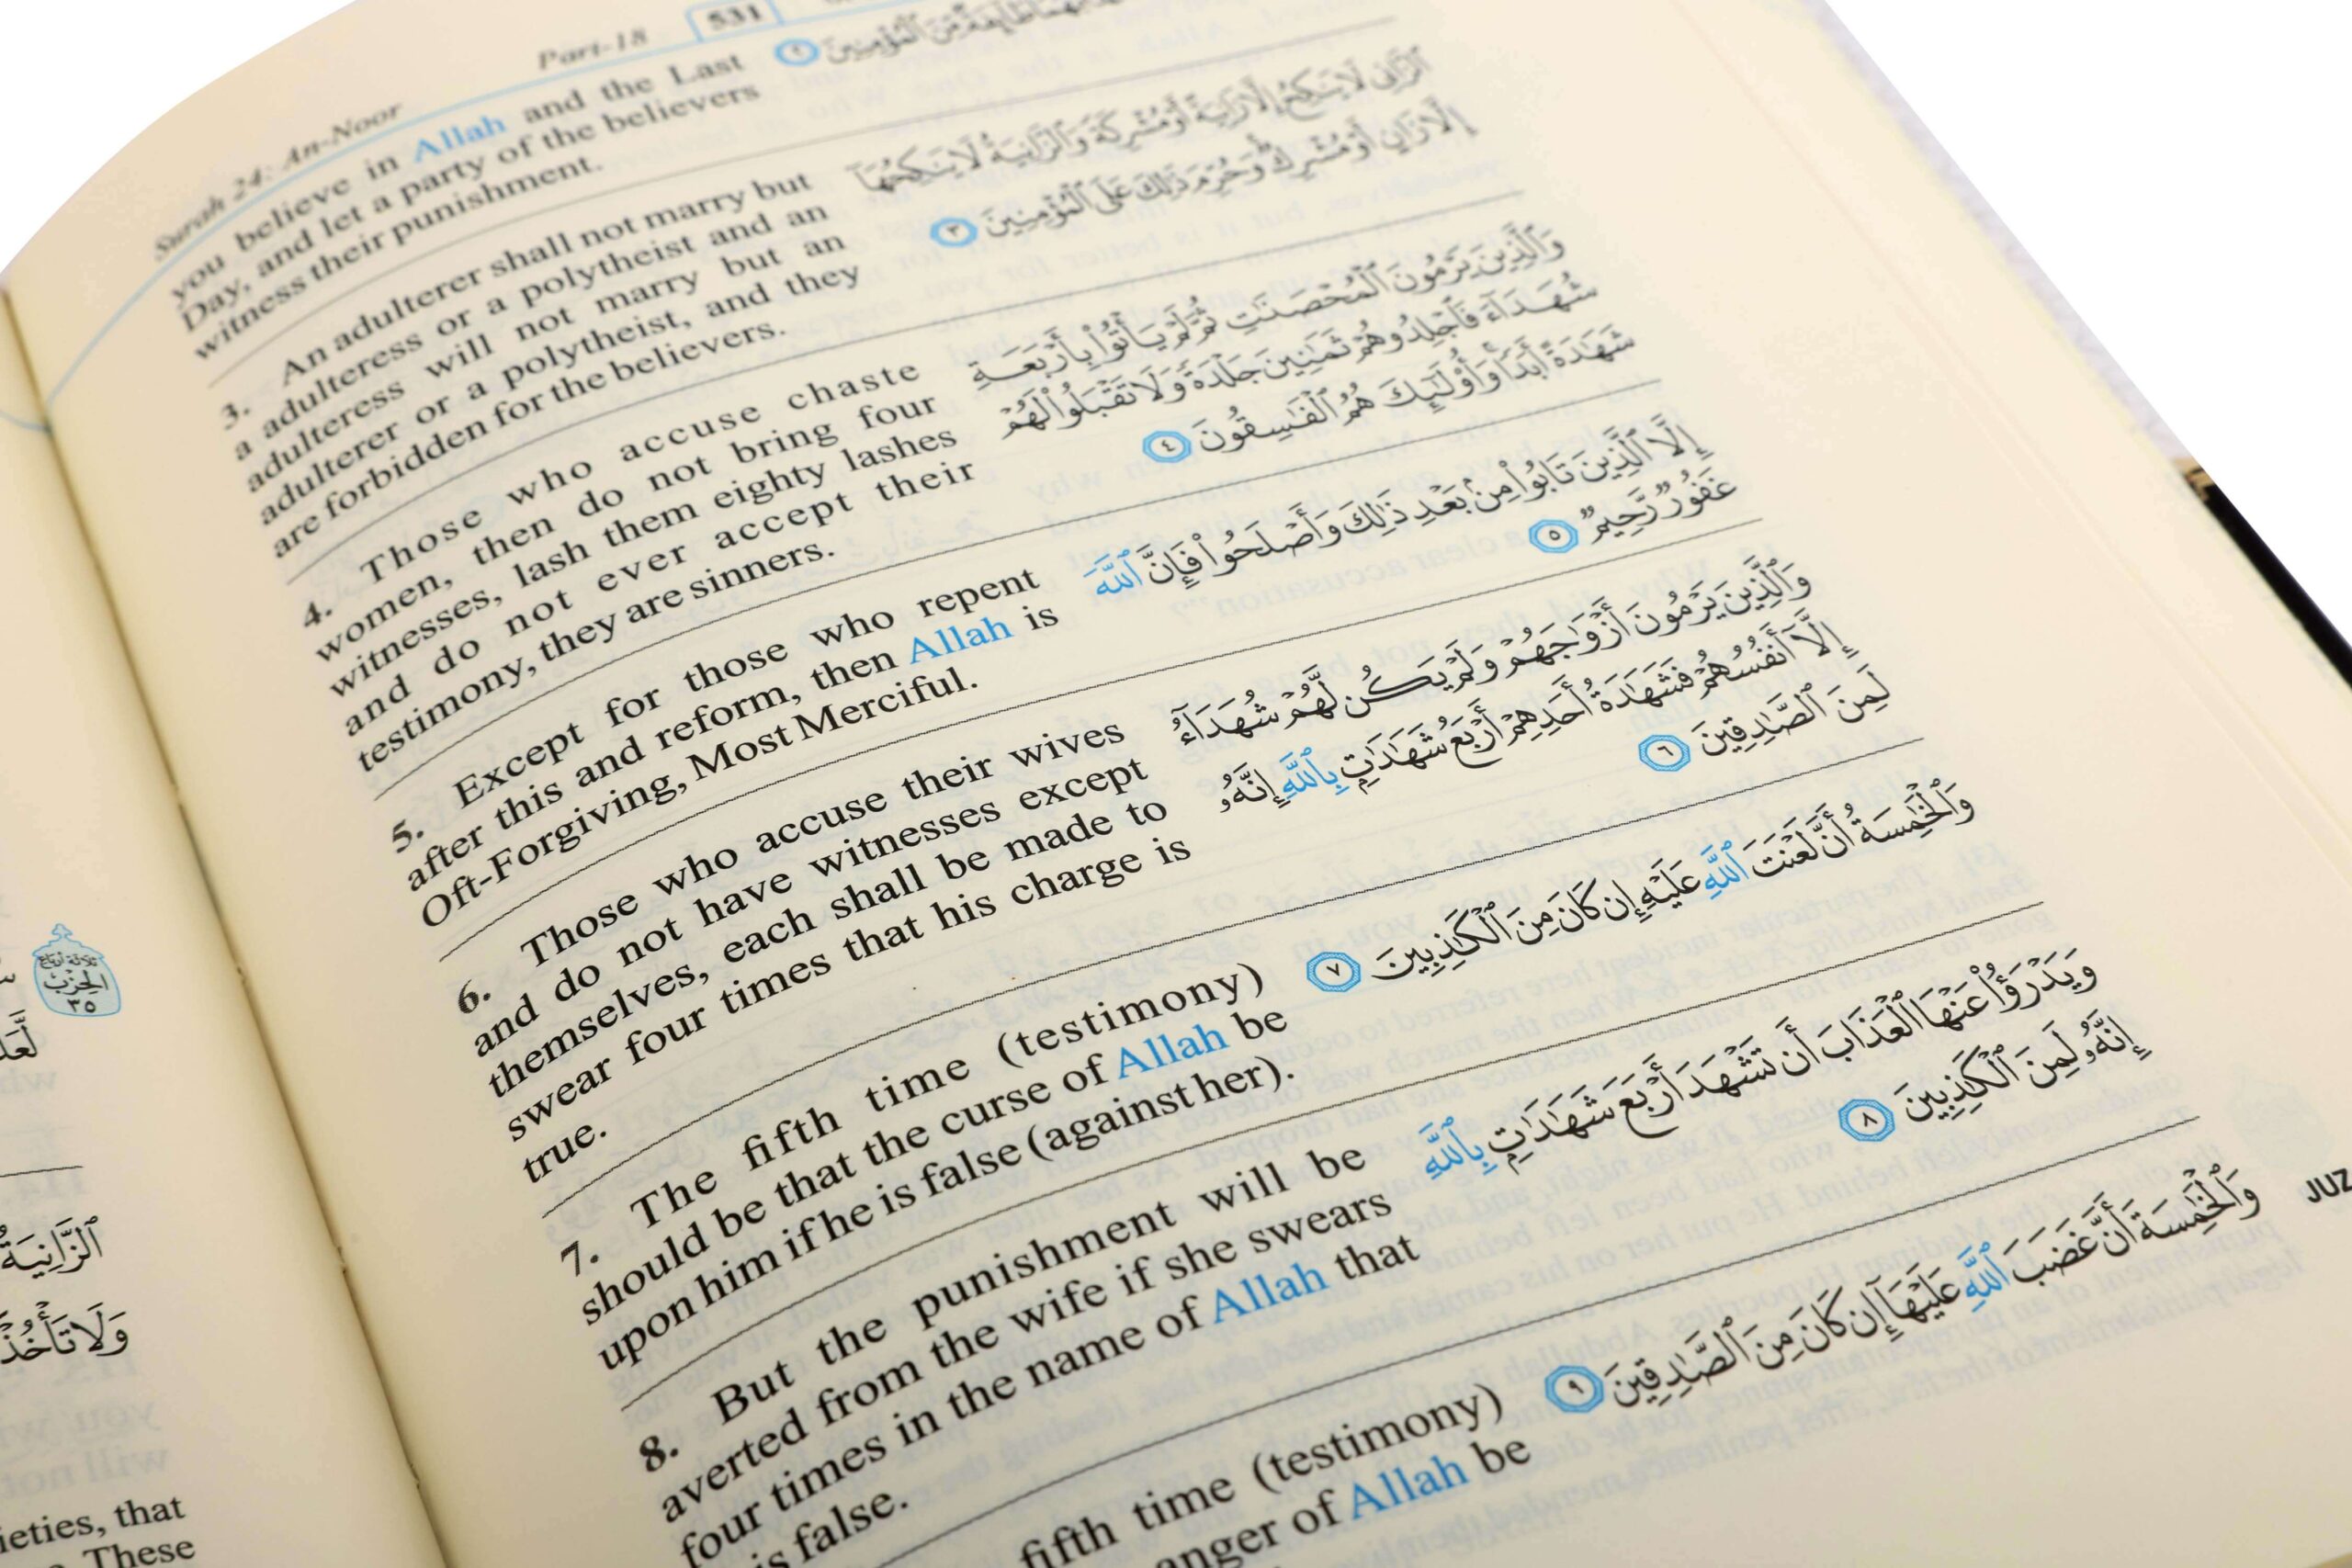 Surah 24: An-Noor
Part-18
531
you believe in Allah and the Last
Day, and let a party of the believers
witness their punishment.
3. An adulterer shall not marry but
a adulteress or a polytheist and an
adulteress will not marry but an
adulterer or a polytheist, and they
are forbidden for the believers.
4. Those who accuse chaste
women, then do not bring four
witnesses, lash them eighty lashes
and do not ever accept their
testimony, they are sinners.
5. Except for those who repent
after this and reform, then Allah is
Oft-Forgiving, Most Merciful.
6. Those who accuse their wives
and do not have witnesses except
themselves, each shall be made to
swear four times that his charge is
true.
7. The fifth time (testimony)
should be that the curse of Allah be
upon him if he is false (against her).
8. But the punishment will be
averted from the wife if she swears
four times in the name of Allah that
is false.
fifth time (testimony)
anger of Allah be
مِّنَ ٱلْمُؤْمِنِينَ ٢
ٱلزَّانِى لَا يَنكِحُ إِلَّا زَانِيَةً أَوْ مُشْرِكَةً وَٱلزَّانِيَةُ لَا يَنكِحُهَآ
إِلَّا زَانٍ أَوْ مُشْرِكٌ وَحُرِّمَ ذَٰلِكَ عَلَى ٱلْمُؤْمِنِينَ ٣
وَٱلَّذِينَ يَرْمُونَ ٱلْمُحْصَنَٰتِ ثُمَّ لَمْ يَأْتُوا۟ بِأَرْبَعَةِ
شُهَدَآءَ فَٱجْلِدُوهُمْ ثَمَٰنِينَ جَلْدَةً وَلَا تَقْبَلُوا۟ لَهُمْ
شَهَٰدَةً أَبَدًا وَأُو۟لَٰٓئِكَ هُمُ ٱلْفَٰسِقُونَ ٤
إِلَّا ٱلَّذِينَ تَابُوا۟ مِنۢ بَعْدِ ذَٰلِكَ وَأَصْلَحُوا۟ فَإِنَّ ٱللَّهَ
غَفُورٌ رَّحِيمٌ ٥
وَٱلَّذِينَ يَرْمُونَ أَزْوَٰجَهُمْ وَلَمْ يَكُن لَّهُمْ شُهَدَآءُ
إِلَّآ أَنفُسُهُمْ فَشَهَٰدَةُ أَحَدِهِمْ أَرْبَعُ شَهَٰدَٰتٍۭ بِٱللَّهِ إِنَّهُۥ
لَمِنَ ٱلصَّٰدِقِينَ ٦
وَٱلْخَٰمِسَةُ أَنَّ لَعْنَتَ ٱللَّهِ عَلَيْهِ إِن كَانَ مِنَ ٱلْكَٰذِبِينَ ٧
وَيَدْرَؤُا۟ عَنْهَا ٱلْعَذَابَ أَن تَشْهَدَ أَرْبَعَ شَهَٰدَٰتٍۭ بِٱللَّهِ
إِنَّهُۥ لَمِنَ ٱلْكَٰذِبِينَ ٨
وَٱلْخَٰمِسَةَ أَنَّ غَضَبَ ٱللَّهِ عَلَيْهَآ إِن كَانَ مِنَ ٱلصَّٰدِقِينَ ٩
JUZ
ثلاثة أرباع
الحزب
٣٥
ٱلزَّانِيَةُ
وَلَا تَأْخُذ
ieties, that
These